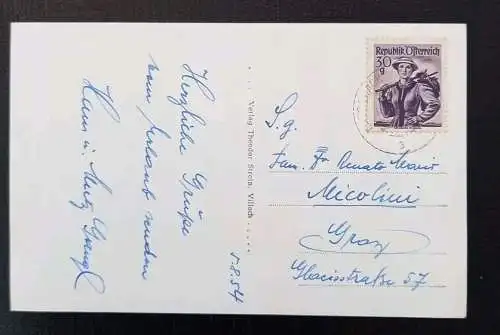 Herzliche Grüße
vom Urlaub senden
Hans u.
5.8.54
Verlag Theodor Strein, Villach
Republik Österreich
30
g
3
S. g.
Fam. Renato
Nicolini
Graz
Glacisstraße 57